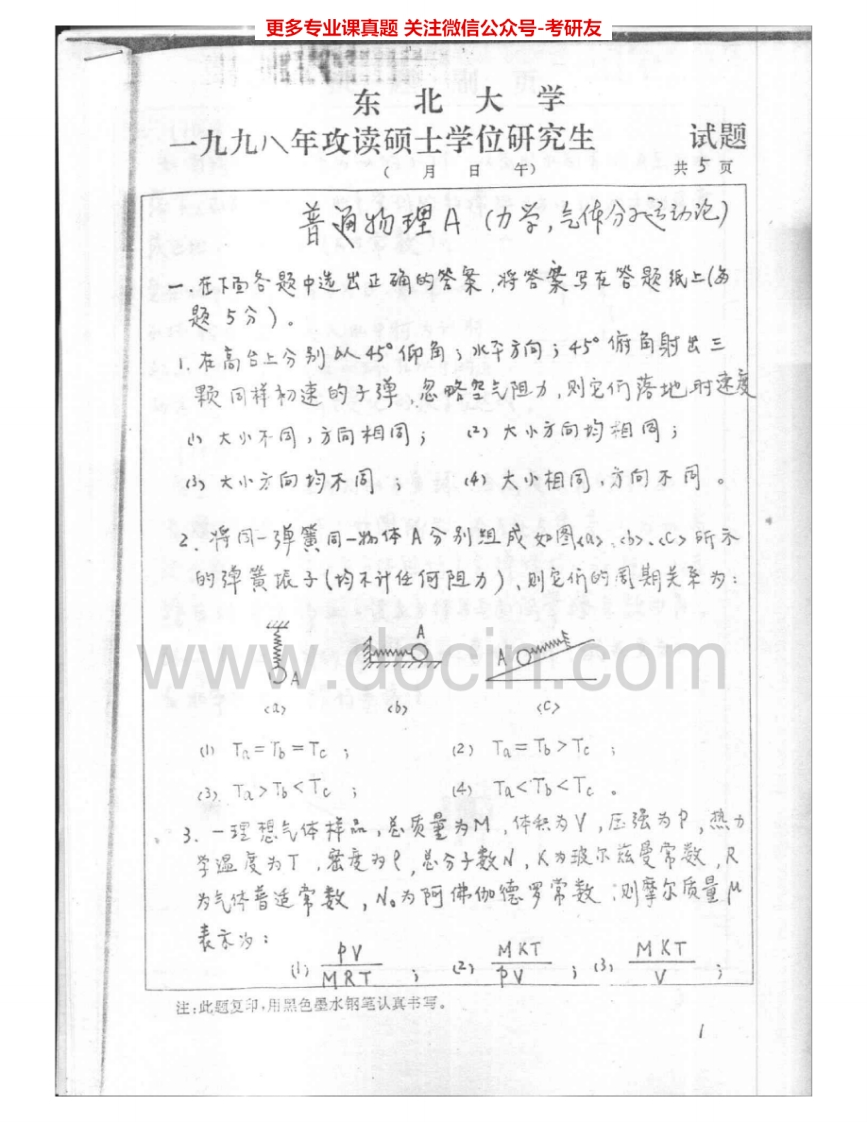 更多专业课真题 关注微信公众号-考研友
东北大学
一九九八年攻读硕士学位研究生 试题
( 月 日 午) 共5页
普通物理A (力学,气体分子运动论)
一.在下面各题中选出正确的答案,将答案写在答题纸上(每
题5分)。
1.在高台上分别从45°仰角;水平方向;45°俯角射出三
颗同样初速的子弹,忽略空气阻力,则它们落地时速度
(1) 大小不同,方向相同; (2) 大小方向均相同;
(3) 大小方向均不同; (4) 大小相同,方向不同。
2. 将同一弹簧同一物体A分别组成如图<a>、<b>、<c>所示
的弹簧振子(均不计任何阻力),则它们的周期关系为:
A A A
www.docin.com
<a> <b> <c>
(1) Ta=Tb=Tc; (2) Ta=Tb>Tc;
(3) Ta>Tb<Tc; (4) Ta<Tb<Tc。
3. 一理想气体样品,总质量为M,体积为V,压强为P,热力
学温度为T,密度为ρ,总分子数N,K为玻尔兹曼常数,R
为气体普适常数,N₀为阿佛伽德罗常数;则摩尔质量μ
表示为:
(1) PV/MRT; (2) MKT/PV; (3) MKT/V;
注:此题复印,用黑色墨水钢笔认真书写。
1